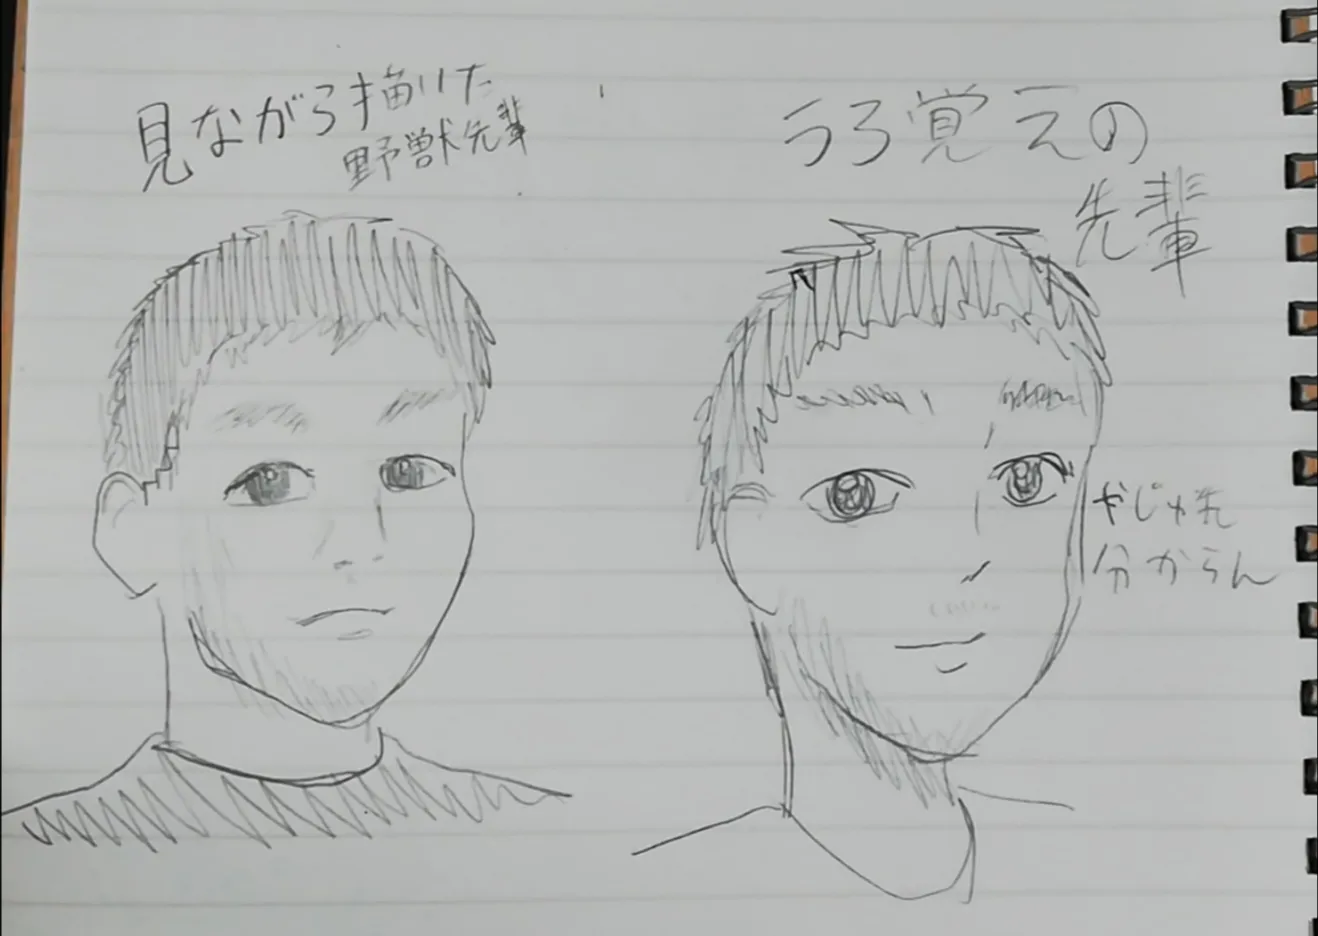 見ながら描いた
野獣先輩
うろ覚えの
先輩
やじゅ先
分からん